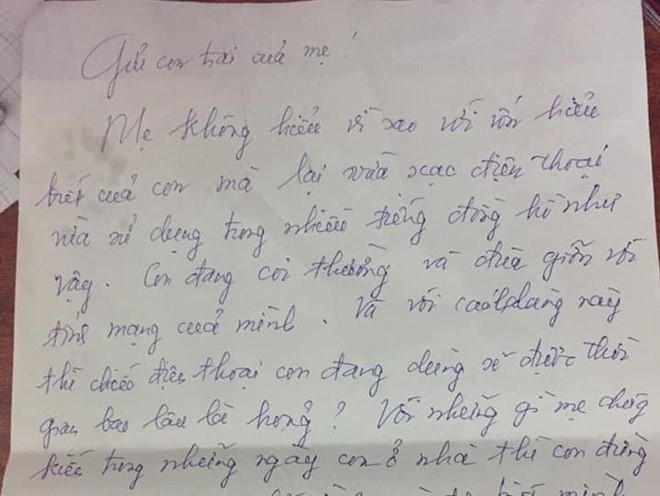 Gửi con trai cuả mẹ!
Mẹ không hiểu vì sao với vốn hiểu
biết cuả con mà lại vừa xạc điện thoại
vừa sử dụng trong nhiều tiếng đồng hồ như
vậy. Con đang coi thường và đuà giỡn với
tính mạng cuả mình. Và với cách dùng này
thì chiếc điện thoại con đang dùng sẽ được thời
gian bao lâu là hỏng? Với những gì mẹ chứng
kiến trong những ngày con ở nhà thì con đừng
mình